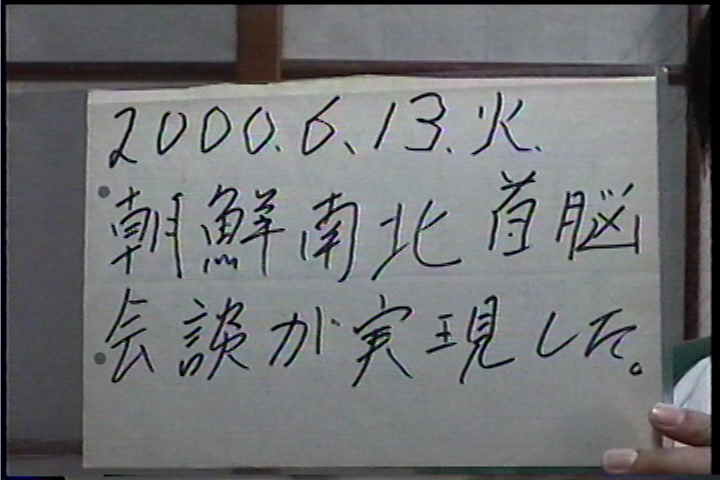 2000.6.13.火.
朝鮮南北首脳
会談が実現した。